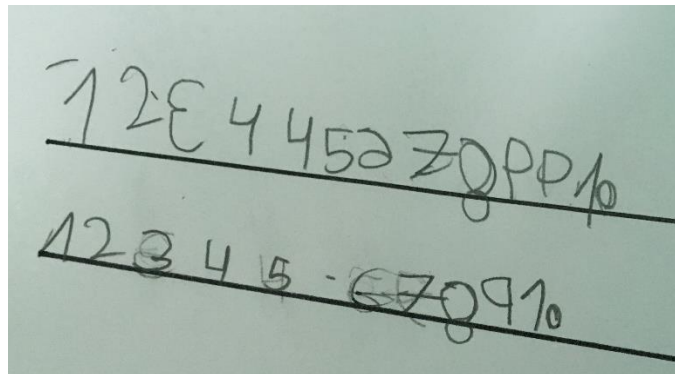 12E445a78PP10
12345-678910